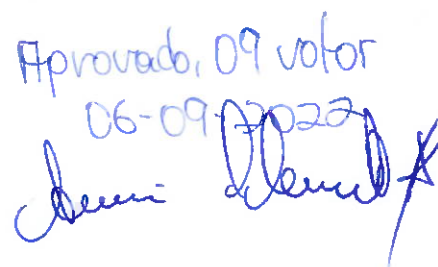 Aprovado, 09 votos
06-09-2022